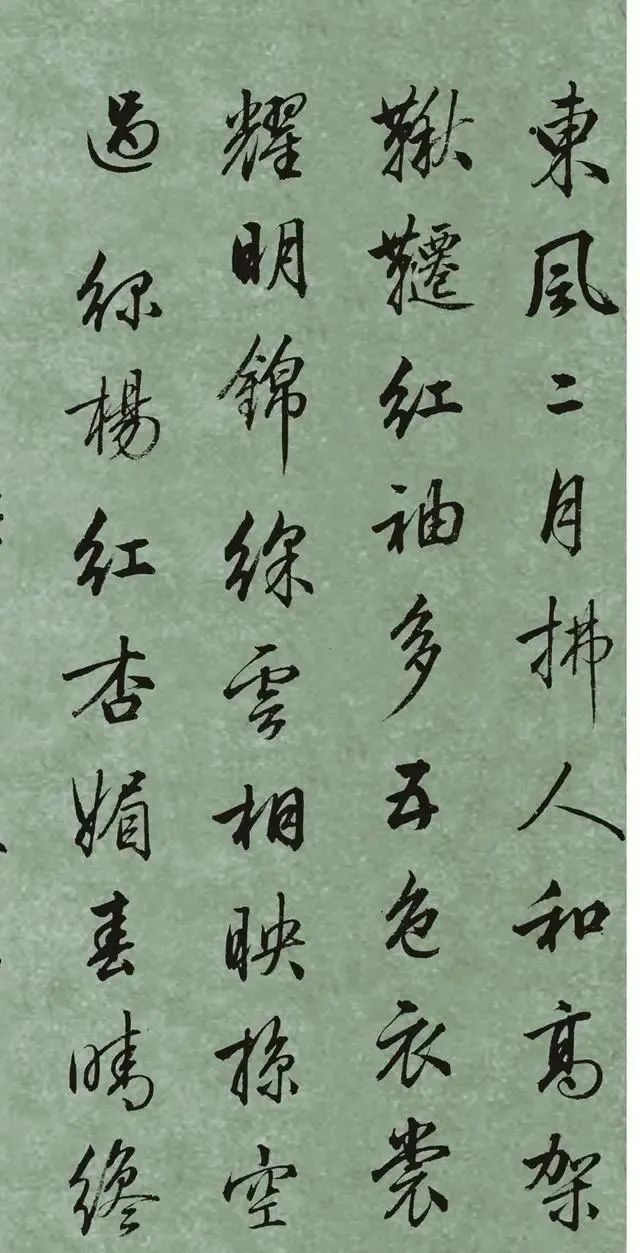 東風二月拂人和高架
鞦韆紅袖多五色衣裳
耀明錦綵雲相映掠空
過 綠楊紅杏媚春晴終